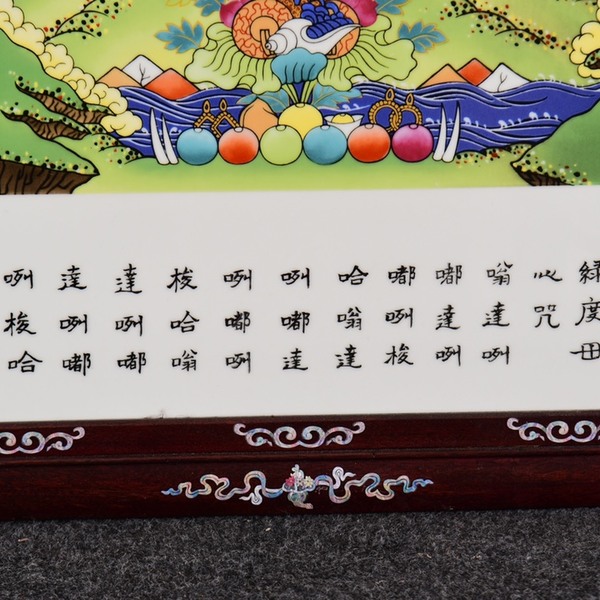 緑度母
心咒
嗡達咧
嘟達咧
嘟咧梭
哈嗡達
咧嘟達
咧嘟咧
梭哈嗡
達咧嘟
達咧嘟
咧梭哈